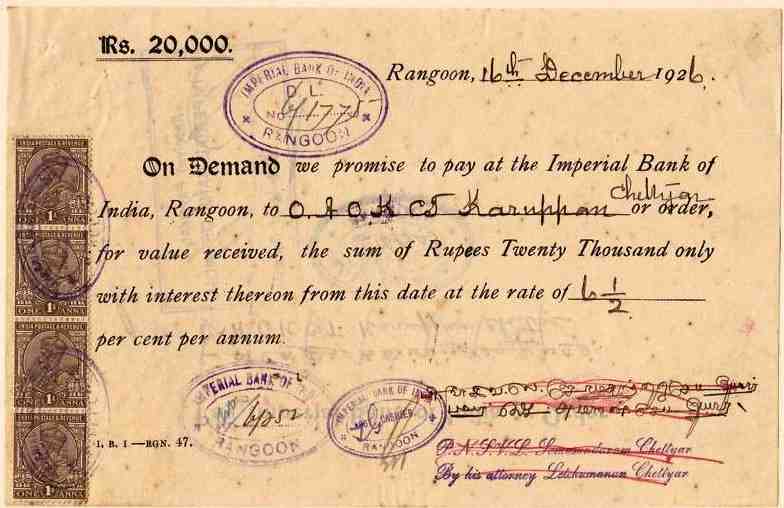 Rs. 20,000.
IMPERIAL BANK OF INDIA
D. L.
No 6/1775
RANGOON
Rangoon, 16th December 1926.
On Demand we promise to pay at the Imperial Bank of
India, Rangoon, to O. A. O. K. CT Karuppan Chettyar or order,
for value received, the sum of Rupees Twenty Thousand only
with interest thereon from this date at the rate of 6 1/2
per cent per annum.
INDIA POSTAGE & REVENUE
ONE 1A ANNA
INDIA POSTAGE & REVENUE
ONE 1A ANNA
INDIA POSTAGE & REVENUE
ONE 1A ANNA
INDIA POSTAGE & REVENUE
ONE 1A ANNA
IMPERIAL BANK OF
RANGOON
IMPERIAL BANK OF INDIA
RANGOON
I. B. I—RGN. 47.
Chettyar
By his attorney Letchumanan Chettyar